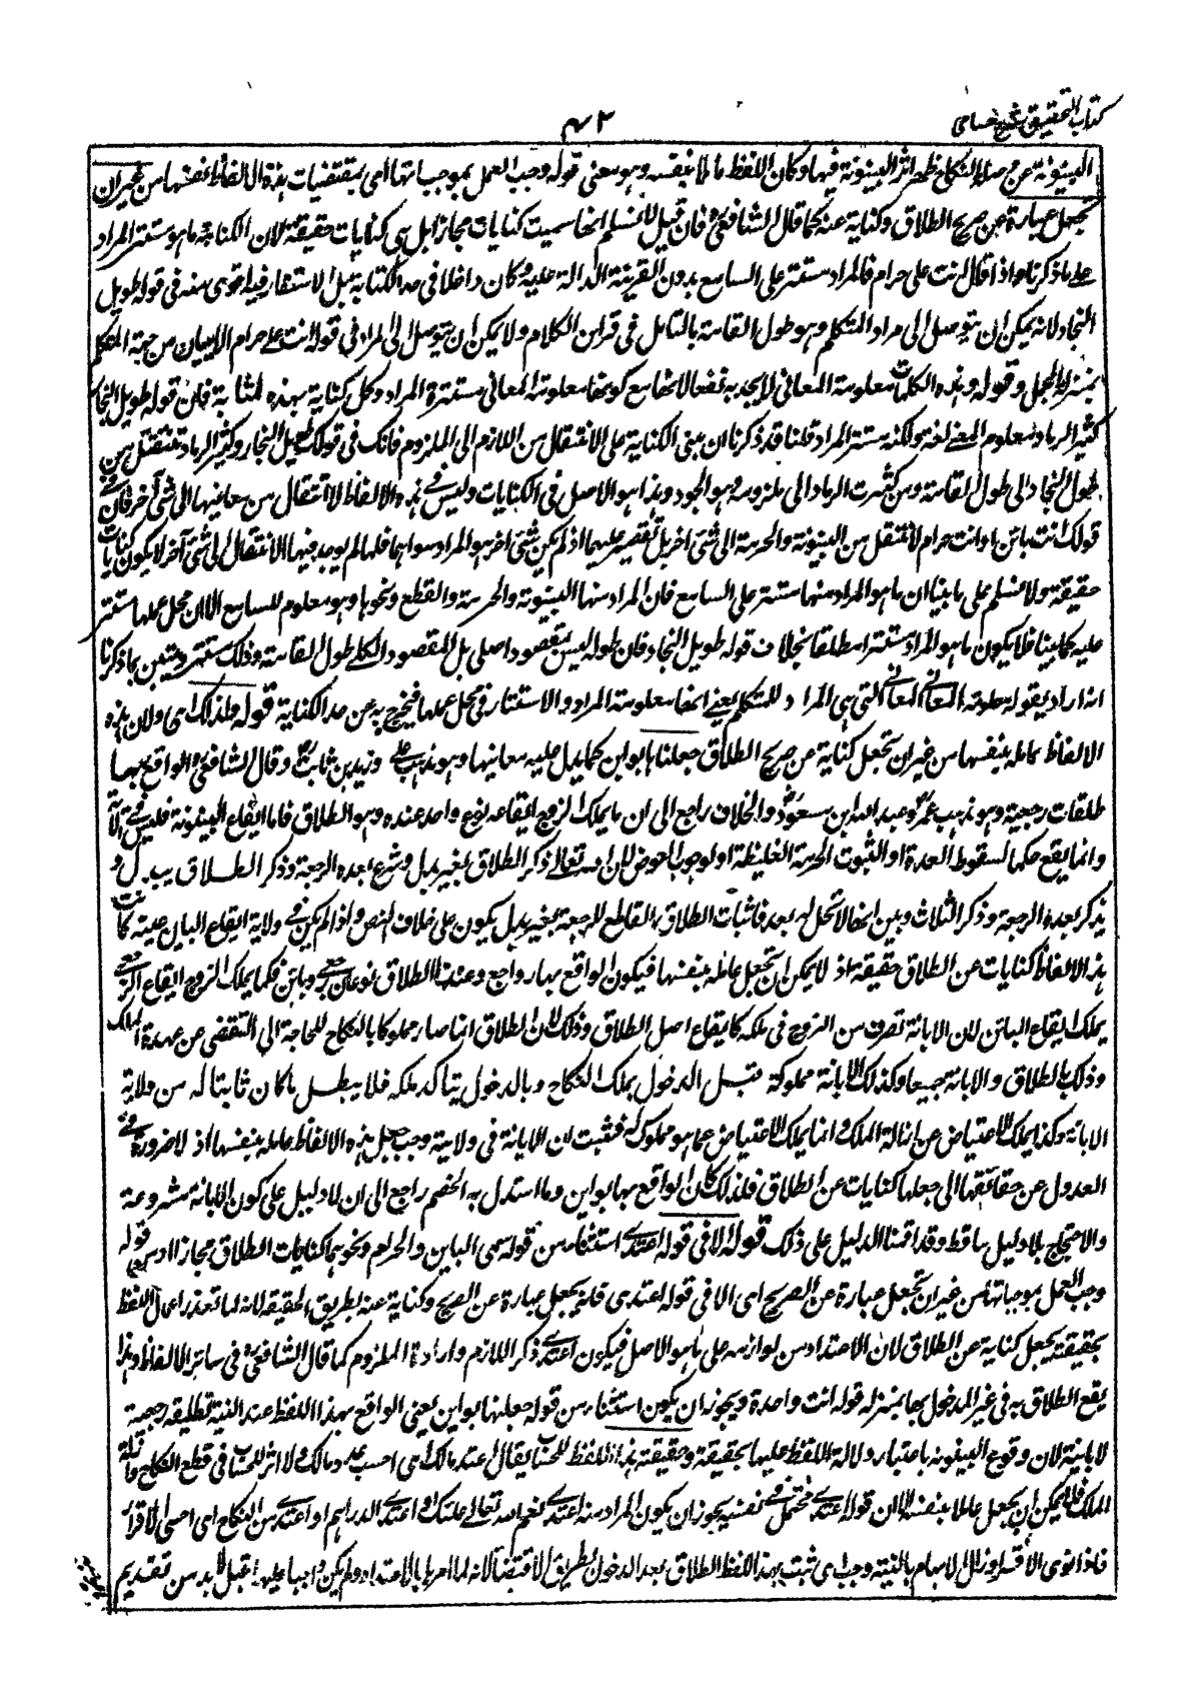 كتاب التحقيق شرح حسامى
٤٢
البينونة عن وصلة النكاح ظهر اثر البينونة فيها وكان اللفظ عاملا بنفسه وهو معنى قوله وجب العمل بموجباتها اى بمقتضيات هذه الالفاظ بنفسها من غير ان
تجعل عبارة عن صريح الطلاق وكناية عنه كما قال الشافعى فان قيل لا نسلم انها سميت كنايات مجازا بل هى كنايات حقيقة لان الكناية ما هو مستتر المراد
على ما ذكرنا واذا قال انت على حرام فالمراد مستتر على السامع بدون القرينة الدالة عليه وكان داخلا فى حد الكناية قبل الاستفسار فيه اقوى منه فى قوله طويل
النجاد لانه يمكن ان يتوصل الى مراد المتكلم وهو طول القامة بالتامل فى قرائن الكلام ولا يمكن ان يتوصل الى المراد فى قوله انت على حرام الا ببيان من جهة المتكلم
بمنزلة المجمل وقوله وهذه الكلمات معلومة المعانى لا يجديه نفعا لانها مع كونها معلومة المعانى مستترة المراد وكل كناية بهذه المثابة فان قوله طويل النجاد
كثير الرماد معلوم المعنى لغة ولكنه مستتر المراد قلنا قد ذكرنا ان مبنى الكناية على الانتقال من اللازم الى الملزوم فانك فى قولك طويل النجاد وكثير الرماد تنتقل من
طول النجاد الى طول القامة ومن كثرت الرماد الى ملزومه وهو الجود وهذا هو الاصل فى الكنايات وليس فى هذه الالفاظ الانتقال من معانيها الى شئ آخر فان فى
قولك انت بائن او انت حرام لا تنتقل من البينونة والحرمة الى شئ آخر بل تقتصر عليهما اذ لم يكن شئ آخر هو المراد سواهما فلما لم يوجد فيها الانتقال الى شئ آخر لا يكون كنايات
حقيقة ولا نسلم على ما بينا ان ما هو المراد منها مستتر على السامع فان المراد منها البينونة والحرمة والقطع ونحوها وهو معلوم للسامع الا ان محل عملها مستتر
عليه كما بينا فلا يكون ما هو المراد مستترا مطلقا بخلاف قوله طويل النجاد فان طوله ليس بمقصود اصلى بل المقصود الكلى طول القامة وذلك مستتر وتبين بما ذكرنا
انه اراد بقوله معلومة المعانى المعانى التى هى المراد للمتكلم يعنى انها معلومة المراد والاستتار فى محل عملها فيخرج به عن حد الكناية قوله ولذلك اى ولان هذه
الالفاظ عاملة بنفسها من غير ان تجعل كناية عن صريح الطلاق جعلناها بوائن كما يدل عليه معانيها وهو مذهب على وزيد بن ثابت وقال الشافعى الواقع بها
طلقات رجعية وهو مذهب عمر وعبد الله بن مسعود والخلاف راجع الى ان ما يملك الزوج ايقاعه نوع واحد عنده وهو الطلاق فاما ايقاع البينونة فليس فى ولايته
وانما يقع حكما لسقوط العدة او لثبوت الحرمة الغليظة او لوجوب العوض لان الله تعالى ذكر الطلاق بغير بدل وشرع بعده الرجعة وذكر الطلاق ببدل ولم
يذكر بعده الرجعة وذكر الثلاث وبين انها لا تحل له بعد فاثبات الطلاق القاطع للرجعة بغير بدل يكون على خلاف النص واذا لم يكن فى ولاية ايقاع البائن عينه كانت
هذه الالفاظ كنايات عن الطلاق حقيقة اذ لا يمكن ان تجعل عاملة بنفسها فيكون الواقع بها رواجع وعندنا الطلاق نوعان رجعى وبائن فكما يملك الزوج ايقاع الرجعى
يملك ايقاع البائن لان الابانة تصرف من الزوج فى ملكه كايقاع اصل الطلاق وذلك لان الطلاق انما صار مملوكا بالنكاح للحاجة الى التفصى عن عهدة الملك
وذلك بالطلاق والابانة جميعا وكذلك الابانة مملوكة قبل الدخول بملك النكاح وبالدخول يتاكد ملكه فلا يبطل ما كان ثابتا له من ولاية
الابانة وكذا يملك الاعتياض عن ازالة الملك وانما يملك الاعتياض عما هو مملوك له فثبت ان الابانة فى ولايته وجب جعل هذه الالفاظ عاملة بنفسها اذ لا ضرورة فى
العدول عن حقائقها الى جعلها كنايات عن الطلاق فلذلك كان الواقع بها بوائن وما استدل به الخصم راجع الى ان لا دليل على كون الابانة مشروعة
والاحتجاج بلا دليل ساقط وقد اقمنا الدليل على ذلك قوله الا فى قوله اعتدى استثناء من قوله سمى البائن والحرام ونحوهما كنايات الطلاق مجازا او من قوله
وجب العمل بموجباتها من غير ان تجعل عبارة عن الصريح اى الا فى قوله اعتدى فانه يجعل عبارة عن الصريح وكناية عنه بطريق الحقيقة لانه لما تعذر اعمال اللفظ
بحقيقته يجعل كناية عن الطلاق لان الاعتداد من لوازمه على ما هو الاصل فيكون اعتدى ذكر اللازم وارادة الملزوم كما قال الشافعى فى سائر الالفاظ ولهذا
يقع الطلاق به فى غير المدخول بها بمنزلة قوله انت واحدة ويجوز ان يكون استثناء من قوله جعلناها بوائن يعنى الواقع بهذا اللفظ عند النية تطليقة رجعية
لا بائنة لان وقوع البينونة باعتبار دلالة اللفظ عليها بحقيقته وحقيقته هذا اللفظ للحساب يقال اعتد مالك اى احسب عدد مالك ولا اثر للحساب فى قطع النكاح وازالة
الملك فلا يمكن ان يجعل عاملا بنفسه الا ان قوله اعتدى محتمل فى نفسه يجوز ان يكون المراد منه اعتدى نعم الله تعالى عليك او اعتدى الدراهم او اعتدى من النكاح اى احصى الاقراء
فاذا نوى الاقراء وزال الابهام بالنية وجب اى ثبت بهذا اللفظ الطلاق بعد الدخول بطريق الاقتضاء لانه لما امرها بالاعتداد ولم يكن واجبا عليها قبل لا بد من تقديم